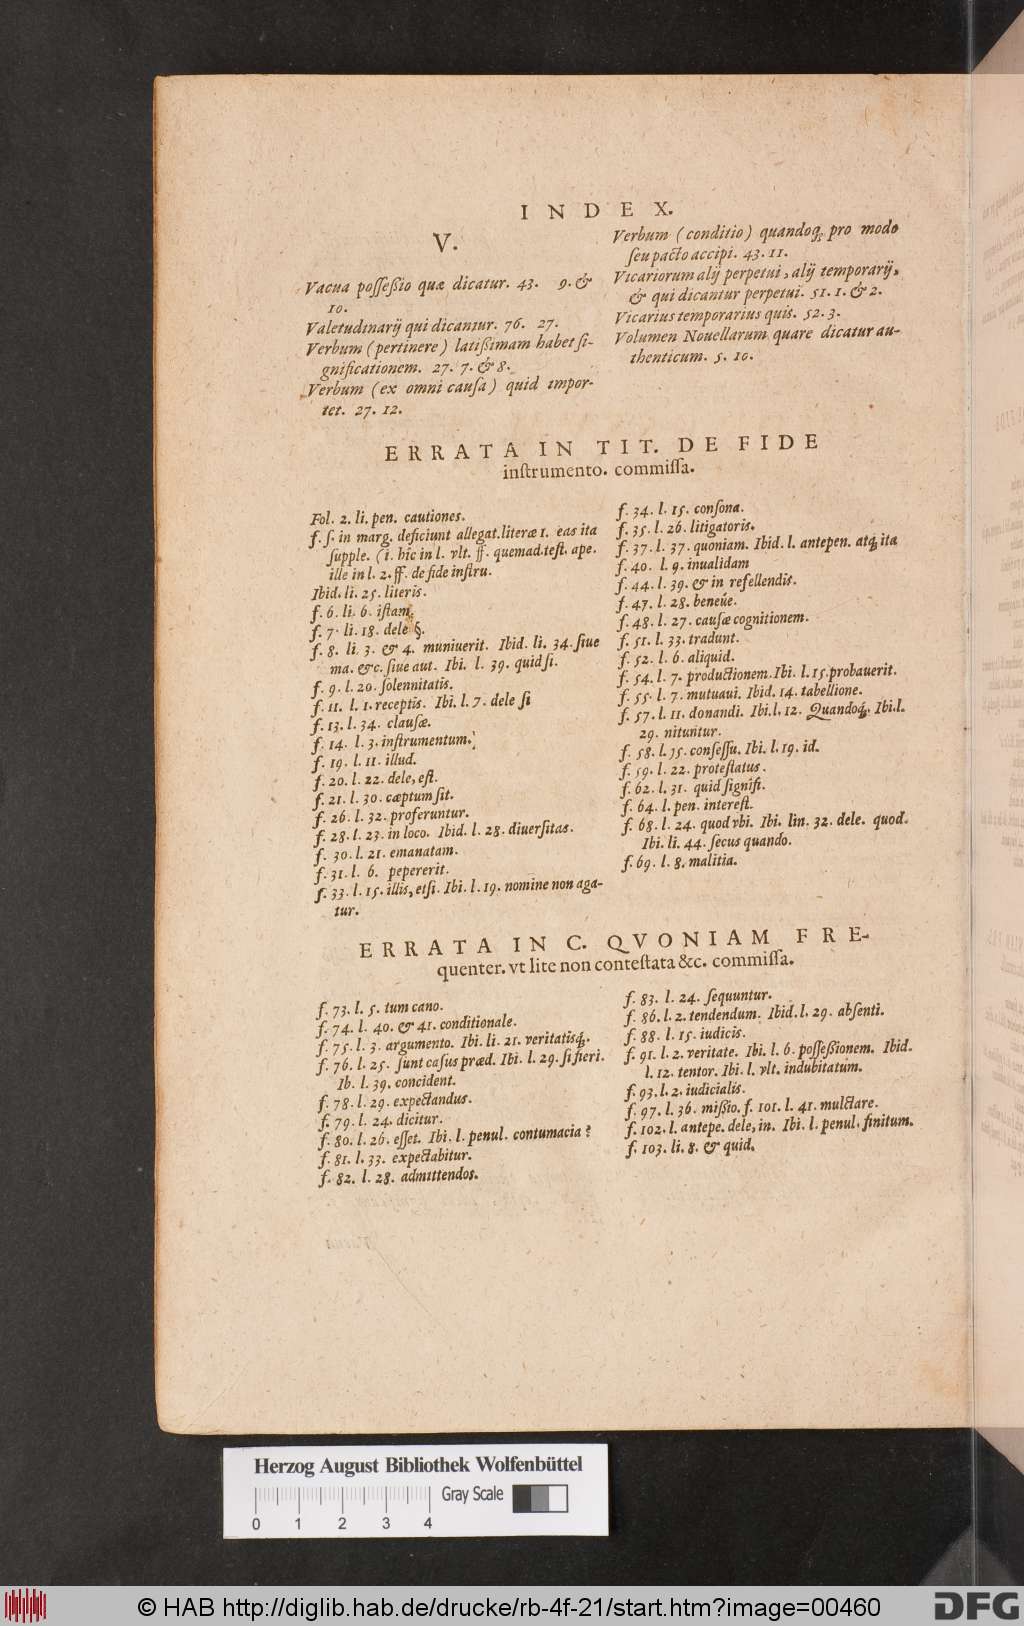 INDEX.
V.
Vacua poſſeßio quæ dicatur. 43. 9. &
10.
Valetudinarij qui dicantur. 76. 27.
Verbum (pertinere) latißimam habet ſi-
gnificationem. 27. 7. & 8.
Verbum (ex omni cauſa) quid impor-
tet. 27. 12.
Verbum (conditio) quandoq; pro modo
ſeu pacto accipi. 43. 11.
Vicariorum alij perpetui, alij temporarij,
& qui dicantur perpetui. 51. 1. & 2.
Vicarius temporarius quis. 52. 3.
Volumen Nouellarum quare dicatur au-
thenticum. 5. 10.
ERRATA IN TIT. DE FIDE
inſtrumento. commiſſa.
Fol. 2. li. pen. cautiones.
f. 5. in marg. deficiunt allegat. literæ 1. eas ita
ſupple. (i. hîc in l. vlt. ff. quemad. teſt. ape.
ille in l. 2. ff. de fide inſtru.
Ibid. li. 25. literis.
f. 6. li. 6. iſtam.
f. 7. li. 18. dele §.
f. 8. li. 3. & 4. muniuerit. Ibid. li. 34. ſiue
ma. &c. ſiue aut. Ibi. l. 39. quid ſi.
f. 9. l. 20. ſolennitatis.
f. 11. l. 1. receptis. Ibi. l. 7. dele ſi
f. 13. l. 34. clauſæ.
f. 14. l. 3. inſtrumentum.
f. 19. l. 11. illud.
f. 20. l. 22. dele, eſt.
f. 21. l. 30. cæptum ſit.
f. 26. l. 32. proferuntur.
f. 28. l. 23. in loco. Ibid. l. 28. diuerſitas.
f. 30. l. 21. emanatam.
f. 31. l. 6. pepererit.
f. 33. l. 15. illis, etſi. Ibi. l. 19. nomine non aga-
tur.
f. 34. l. 15. conſona.
f. 35. l. 26. litigatoris.
f. 37. l. 37. quoniam. Ibid. l. antepen. atq; ita
f. 40. l. 9. inualidam
f. 44. l. 39. & in refellendis.
f. 47. l. 28. beneúe.
f. 48. l. 27. cauſæ cognitionem.
f. 51. l. 33. tradunt.
f. 52. l. 6. aliquid.
f. 54. l. 7. productionem. Ibi. l. 15. probauerit.
f. 55. l. 7. mutuaui. Ibid. 14. tabellione.
f. 57. l. 11. donandi. Ibi. l. 12. Quandoq;. Ibi. l.
29. nituntur.
f. 58. l. 35. conſeſſu. Ibi. l. 19. id.
f. 59. l. 22. proteſtatus.
f. 62. l. 31. quid ſignifi.
f. 64. l. pen. intereſt.
f. 68. l. 24. quod vbi. Ibi. lin. 32. dele. quod.
Ibi. li. 44. ſecus quando.
f. 69. l. 8. malitia.
ERRATA IN C. QVONIAM FRE-
quenter. vt lite non conteſtata &c. commiſſa.
f. 73. l. 5. tum cano.
f. 74. l. 40. & 41. conditionale.
f. 75. l. 3. argumento. Ibi. li. 21. veritatisq;.
f. 76. l. 25. ſunt caſus præd. Ibi. l. 29. ſi fieri.
Ib. l. 39. concident.
f. 78. l. 29. expectandus.
f. 79. l. 24. dicitur.
f. 80. l. 26. eſſet. Ibi. l. penul. contumacia?
f. 81. l. 33. expectabitur.
f. 82. l. 28. admittendos.
f. 83. l. 24. ſequuntur.
f. 86. l. 2. tendendum. Ibid. l. 29. abſenti.
f. 88. l. 15. iudicis.
f. 91. l. 2. veritate. Ibi. l. 6. poſſeßionem. Ibid.
l. 12. tentor. Ibi. l. vlt. indubitatum.
f. 93. l. 2. iudicialis.
f. 97. l. 36. mißio. f. 101. l. 41. mulctare.
f. 102. l. antepe. dele, in. Ibi. l. penul. finitum.
f. 103. li. 8. & quid.
Herzog August Bibliothek Wolfenbüttel
Gray Scale
0 1 2 3 4
© HAB http://diglib.hab.de/drucke/rb-4f-21/start.htm?image=00460
DFG